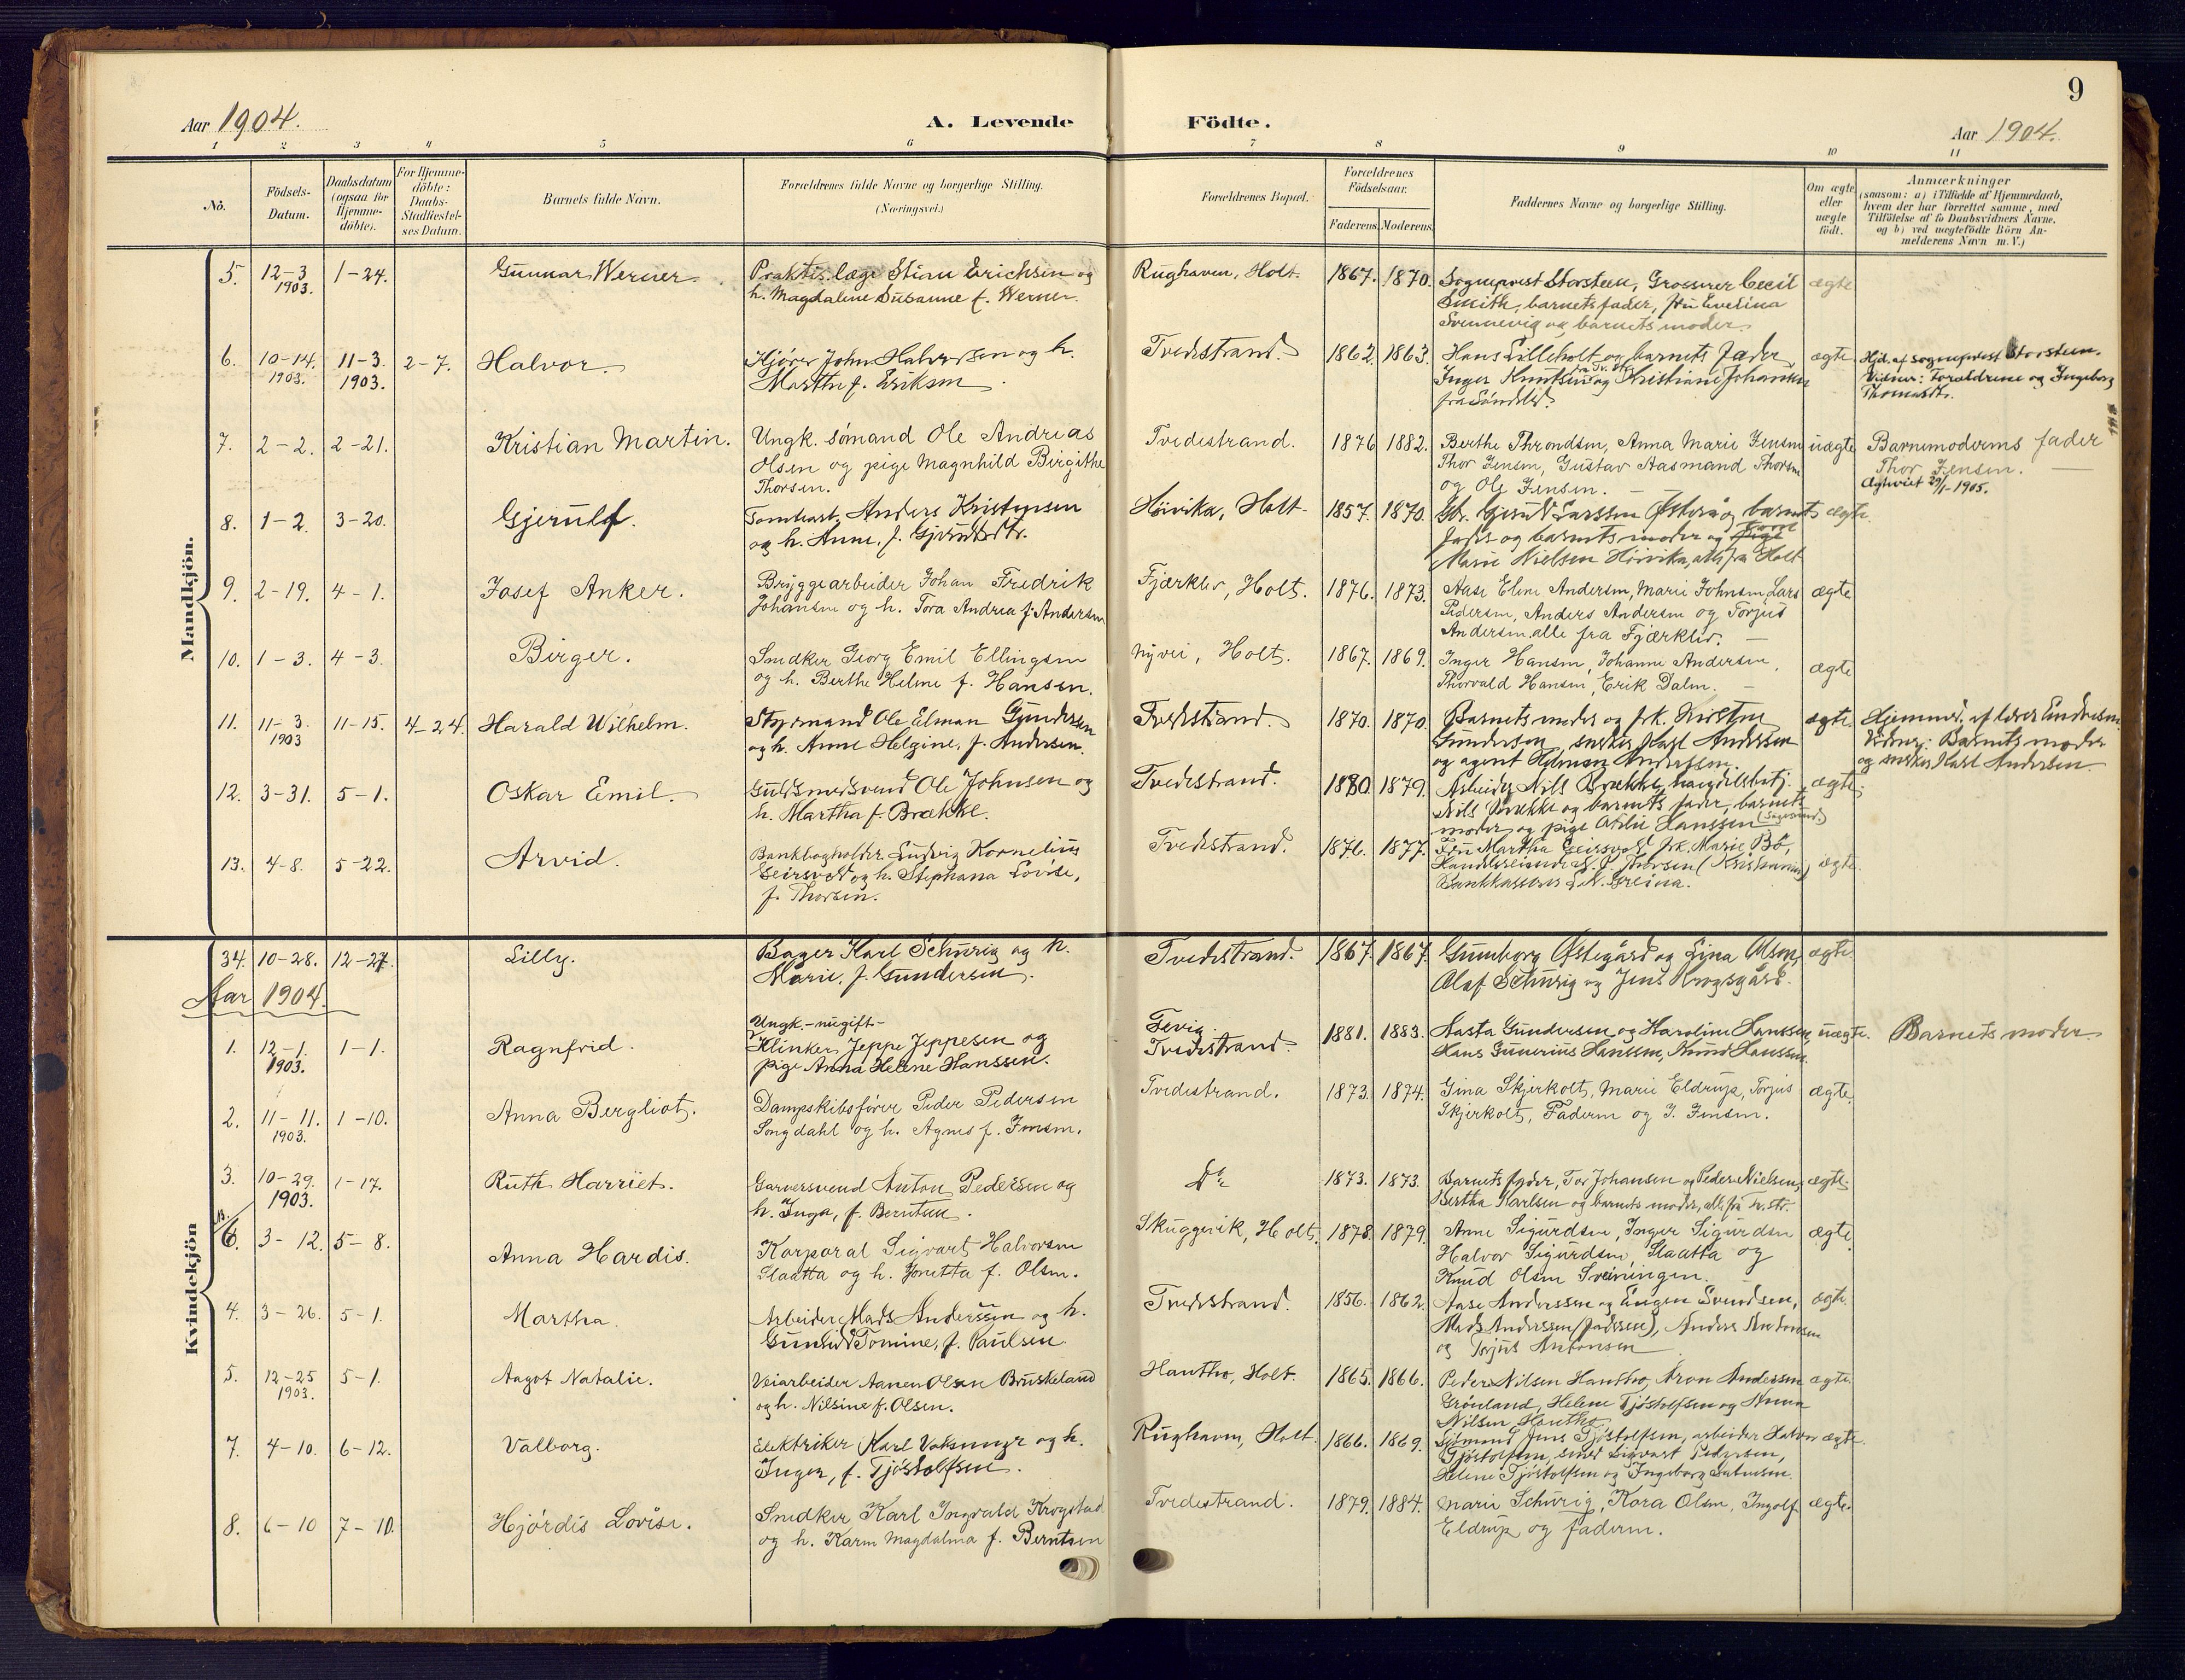 9
Aar 1904.
A. Levende
Födte.
Aar 1904.
1 2 3 4 5 6 7 8 9 10 11
No.
Födsels-
Datum.
Daabsdatum
(ogsaa for
Hjemme-
döbte).
For Hjemme-
döbte:
Daabs-
Stadfæstel-
ses Datum.
Barnets fulde Navn.
Forældrenes fulde Navne og borgerlige Stilling.
(Næringsvei.)
Forældrenes Bopæl.
Forældrenes
Födselsaar.
Faderens. Moderens.
Faddernes Navne og borgerlige Stilling.
Om ægte
eller
uægte
födt.
Anmærkninger
(saasom: a) i Tilfælde af Hjemmedaab,
hvem der har forrettet samme, med
Tilföielse af to Daabsvidners Navne,
og b) ved uægtefödte Börn An-
melderens Navn m. V.)
Mandkjön.
5. 12-3 1903. 1-24. Gunnar Werner.
Praktis. læge Stian Erichsen og
h. Magdalene Susanne f. Werner.
Rughaven, Holt. 1867. 1870.
Sogneprest Storsteen, Grosserer Cecil
Smith, barnets fader, fru Evelina
Svennevig og barnets moder.
ægte
6. 10-14. 1903. 11-3 1903. 2-7. Halvor.
Kjører John Halvorsen og h.
Marthe f. Eriksen
Tvedestrand. 1862. 1863.
Hans Lilleholt og barnets fader,
Inger Knutsen og Kristiane Johansen
fra Søndeled.
ægte
Hjd. af sogneprest Storsteen.
Vidner: Forældrene og Ingeborg
7. 2-2. 2-21. Kristian Martin.
Ungk. sømand Ole Andreas
Olsen og pige Magnhild Birgithe
Thorsen.
Tvedestrand. 1876 1882.
Berthe Throndsen, Anna Marie Jensen
Thor Jensen, Gustav Aasmand Thorsen
og Ole Jensen.
uægte
Barnemoderens fader
Thor Jensen.
29/1-1905.
8. 1-2. 3-20. Gjerulf.
Tomtearb. Anders Kristensen
og h. Anne, f. Gjerulfsdtr.
Høivika, Holt. 1857. 1870.
Gbr. Gjerulf Larssen Østerå og barnets
fader og barnets moder og
Marie Nielsen Høivika, alle fra Holt
ægte.
9. 2-19. 4-1. Josef Anker.
Bryggearbeider Johan Fredrik
Johansen og h. Tora Andrea f. Andersen
Fjærkleiv, Holt. 1876. 1873.
Aase Eline Andersen, Marie Johnsen, Lars
Pedersen, Anders Andersen og Torjus
Andersen alle fra Fjærkleiv.
ægte
10. 1-3. 4-3. Birger.
Snedker Georg Emil Ellingsen
og h. Berthe Helene f. Hansen.
Nyvei, Holt. 1867. 1869.
Inger Hansen, Johanne Andersen,
Thorvald Hansen, Erik Dalen.
ægte
11. 11-3. 1903 11-15. 4-24. Harald Wilhelm.
Styrmand Ole Elman Gundersen
og h. Anne Helgine, f. Andersen.
Tvedestrand. 1870. 1870.
Barnets moder og frk. Kirstine
Gundersen, snedker Karl Andersen
og agent Herman Andersen.
ægte.
Hjemmed. af lærer
Vidner: Barnets moder
og snedker Karl Andersen.
12. 3-31. 5-1. Oskar Emil.
Guldsmedsvend Ole Johnsen og
h. Martha f. Brække.
Tvedestrand. 1880. 1879.
Arbeider Nils Brække, handelsbetj.
Nils Brække og barnets fader, barnets
moder og pige Otilie Hanssen
ægte.
13. 4-8. 5-22. Arvid.
Bankbogholder Ludvig Kornelius
Geirsvold og h. Stephana Lovise,
f. Thorsen.
Tvedestrand. 1876. 1877.
Fru Martha Geirsvold, frk. Marie Bö,
Handelsreisende Thorsen (Kristiania)
Bankkasserer
ægte.
Kvindekjön
34. 10-28. 12-27. Lilly.
Bager Karl Schurig og h.
Marie, f. Gundersen.
Tvedestrand. 1867. 1867.
Gunnborg Østegård og Lina Olsen,
Olaf Schurig og Jens Krogsgård.
ægte.
Aar 1904.
1. 12-1. 1903. 1-1. Ragnfrid.
Ungk. - nugift -
Klinker Jeppe Jeppesen og
pige Anna Helene Hanssen.
Fevig.
Tvedestrand. 1881. 1883.
Aasta Gundersen og Karoline Hanssen,
Hans Gunerius Hanssen, Knud Hanssen.
uægte.
Barnets moder.
2. 11-11. 1903. 1-10. Anna Bergliot.
Dampskibsfører Peder Pedersen
Songdahl og h. Agnes f. Jensen.
Tvedestrand. 1873. 1874.
Gina Skjerkolt, Marie Eldrup, Torjus
Skjerkolt, Faderen og J. Jensen.
ægte.
3. 10-29. 1903. 1-17. Ruth Harriet.
Garversvend Anton Pedersen og
h. Inga, f. Berntsen.
Do 1873. 1873.
Barnets fader, Tor Johansen og Peder Nielsen,
Bertha Karlsen og barnets moder, alle fra Tv. str.
ægte.
6. 3-12. 5-8. Anna Hardis.
Korporal Sigvart Halvorsen
Slaatta og h. Jonetta f. Olsen.
Skuggevik, Holt. 1878. 1879.
Anne Sigurdsen, Inger Sigurdsen
Halvor Sigurdsen, Slaatta og
Knud Olsen Sveiningen.
ægte.
4. 3-26. 5-1. Martha.
Arbeider Mads Anderssen og h.
Gunhild Tomine, f. Paulsen.
Tvedestrand. 1856. 1862.
Aase Anderssen og Eugen Svendsen,
Mads Anderssen (faderen), Anders Antonsen
og Torjus Antonsen
ægte.
5. 12-25 1903. 5-1. Aagot Natalie.
Veiarbeider Aanen Olsen Bruskeland
og h. Nilsine f. Olsen.
Hantho, Holt. 1865. 1866.
Peder Nilsen Hantho, Aron Andersen
Grønland, Helene Tjøstolfsen og Anna
Nilsen Hantho
ægte.
7. 4-10. 6-12. Valborg.
Elektriker Karl og h.
Inger, f. Tjøstolfsen.
Rughaven, Holt. 1866. 1869.
Sjømand Jens Tjøstolfsen, arbeider Halvor
Tjøstolfsen, smed Sigvart Pedersen,
Helene Tjøstolfsen og Ingeborg
ægte.
8. 6-10 7-10. Hjørdis Lovise.
Snedker Karl Ingvald Krogstad
og h. Karen Magdalena f. Berntsen
Tvedestrand. 1879. 1884.
Marie Schurig, Kora Olsen, Ingolf
Eldrup og faderen.
ægte.